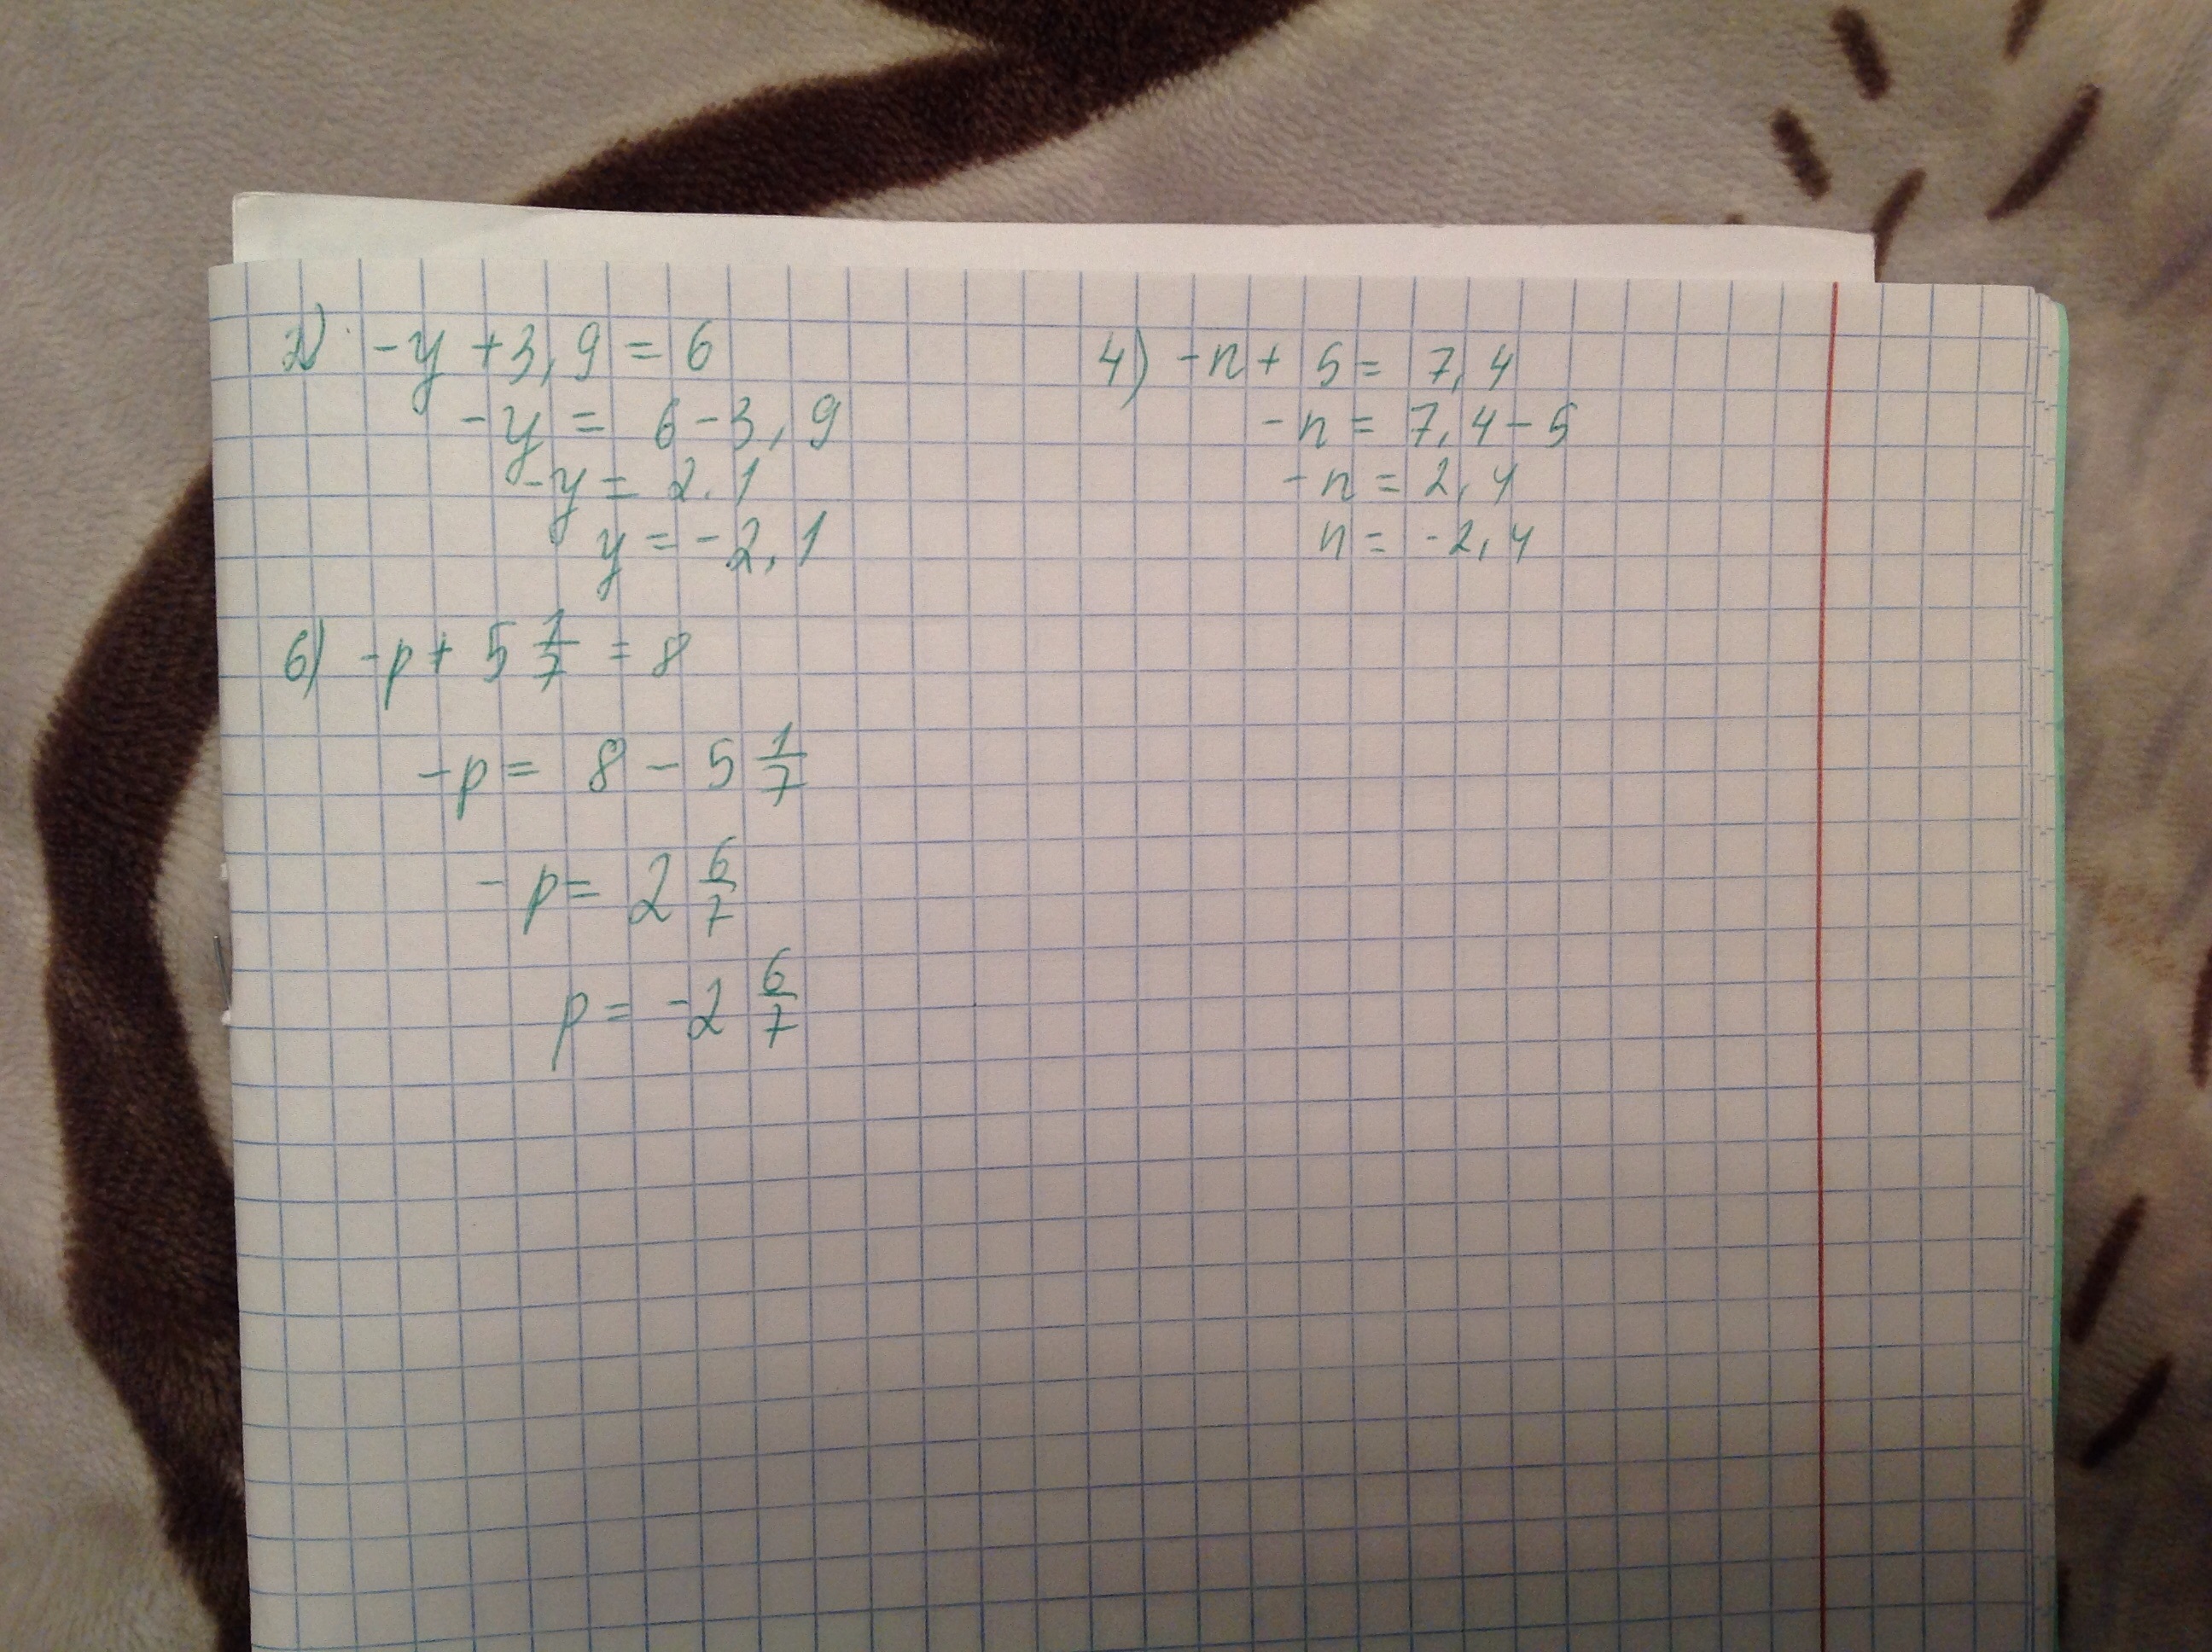 2) -y + 3,9 = 6
-y = 6 - 3,9
-y = 2,1
y = -2,1
4) -n + 5 = 7,4
-n = 7,4 - 5
-n = 2,4
n = -2,4
6) -p + 5 1/7 = 8
-p = 8 - 5 1/7
-p = 2 6/7
p = -2 6/7